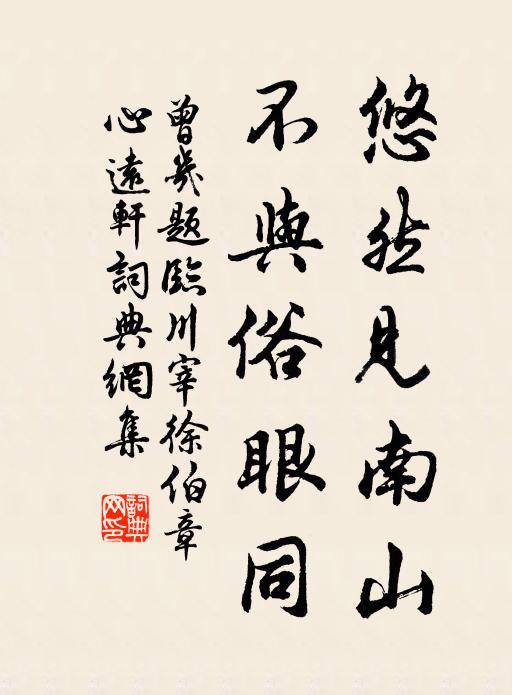 悠然見南山
不與俗眼同
曾幾題臨川宰徐伯章
心遠軒詞典網集
詞典
网印